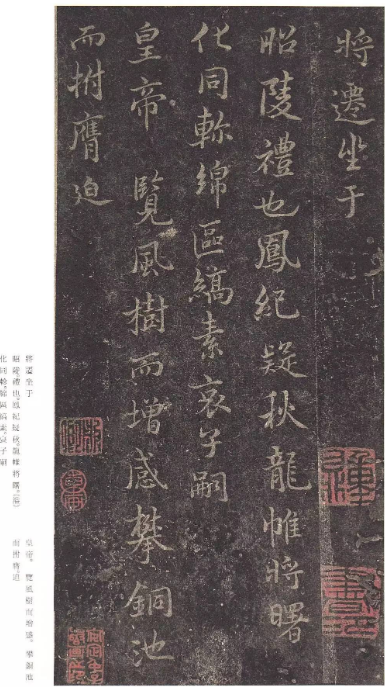 將遷坐于
昭陵禮也鳳紀疑秋龍帷將曙
化同軫綿區縞素哀子嗣
皇帝覽風樹而增感攀銅池
而拊膺迫
將遷坐于
昭陵禮也。鳳紀疑秋。龍帷將曙。
化同軫。綿區縞素。哀子嗣
皇帝。覽風樹而增感。攀銅池
而拊膺。迫